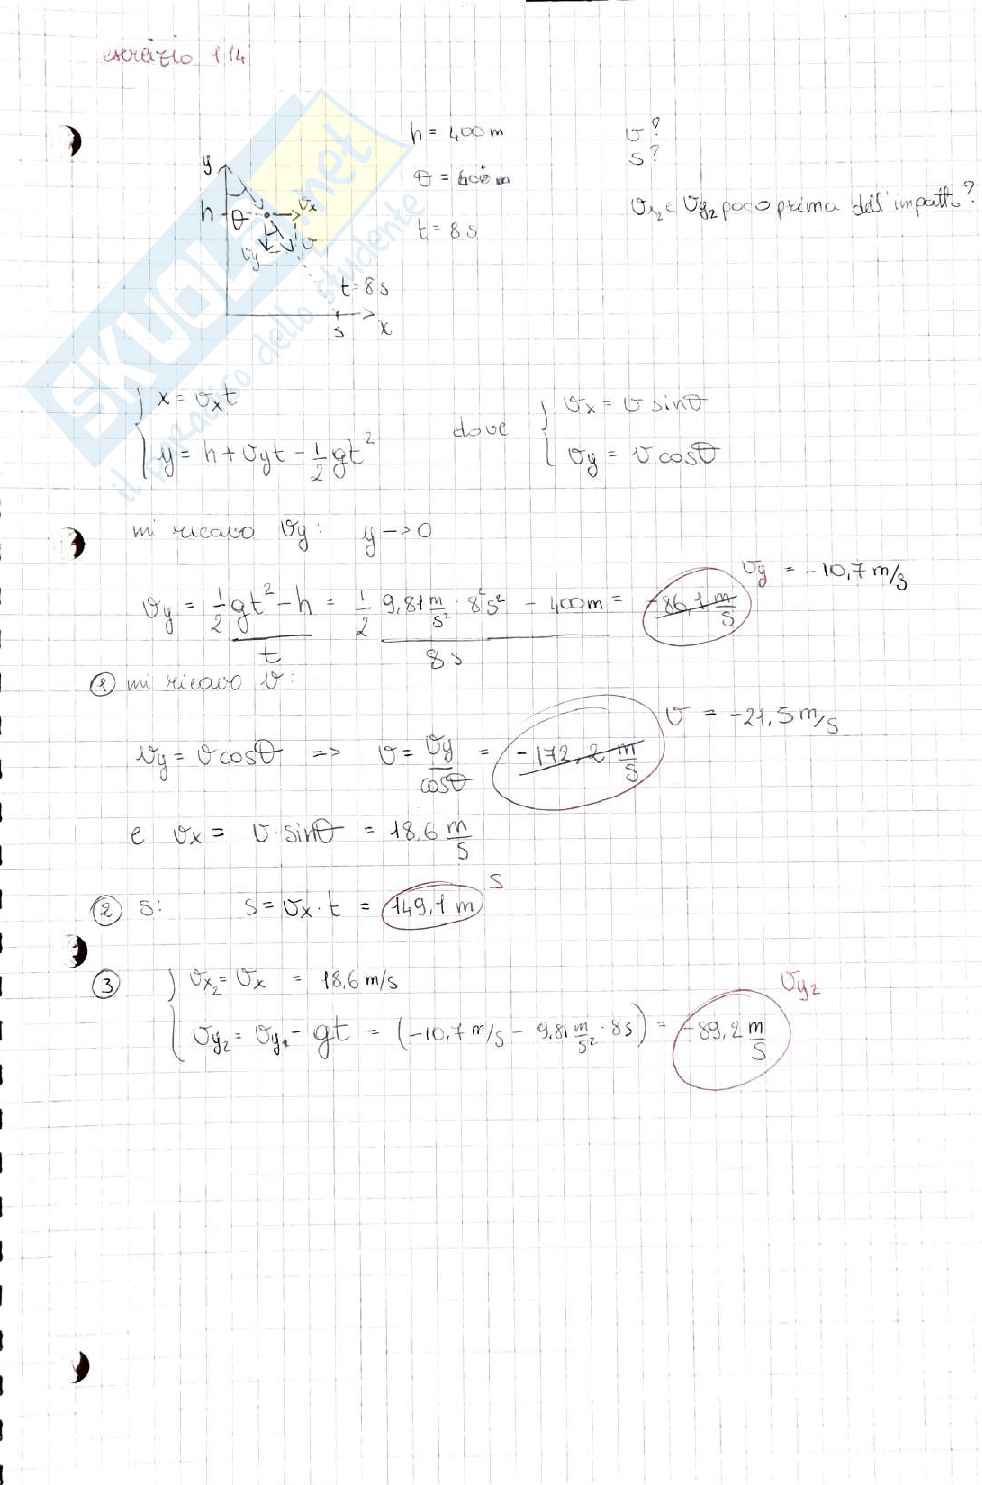 esercizio 1.14
h = 400 m
v?
s?
θ =
v_x2 e v_y2 poco prima dell'impatto?
t = 8s
y
h
θ
v
v_x
v_y
v
t=8s
s
x
SKUOLA.net
il paradiso dello studente
{ x = v_x t
{ y = h + v_y t - 1/2 gt²
dove
{ v_x = v sinθ
{ v_y = v cosθ
mi ricavo v_y: y → 0
v_y = (1/2 gt² - h)/t = (1/2 9,81 m/s² · 8² s² - 400 m)/8 s = -86,1 m/s v_y = -10,7 m/s
① mi ricavo v:
v_y = v cosθ => v = v_y/cosθ = -172,2 m/s v = -21,5 m/s
e v_x = v · sinθ = 18,6 m/s
② s: s = v_x · t = 149,1 m s
③ { v_x2 = v_x = 18,6 m/s
{ v_y2 = v_y1 - gt = (-10,7 m/s - 9,81 m/s² · 8s) = -89,2 m/s v_y2